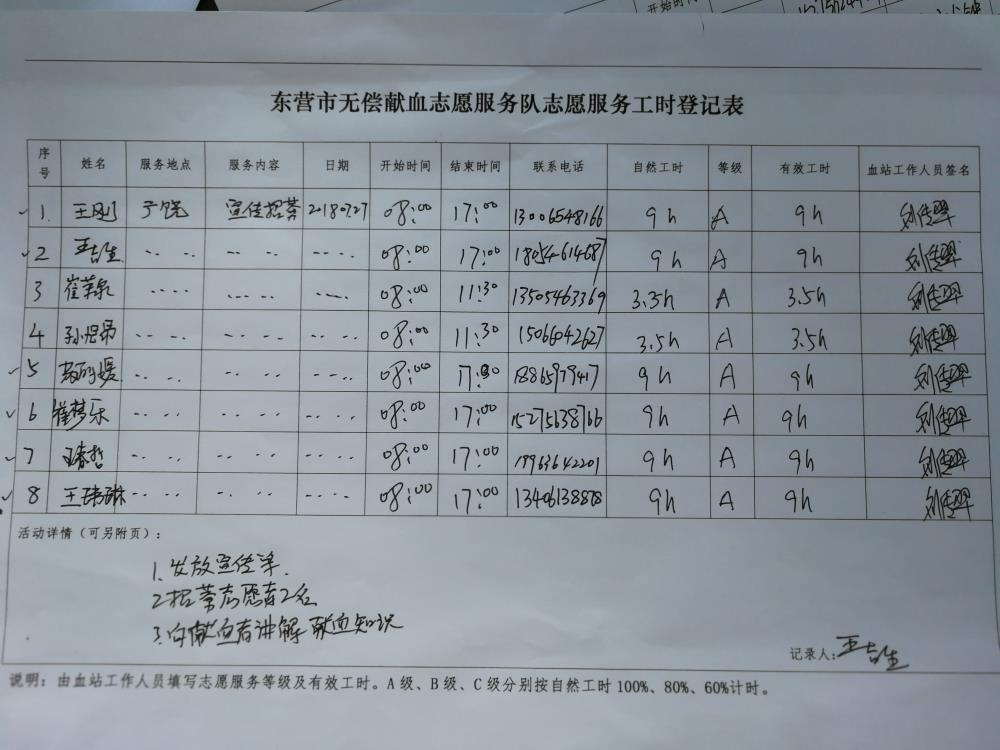 开始时间
东营市无偿献血志愿服务队志愿服务工时登记表
序号 姓名 服务地点 服务内容 日期 开始时间 结束时间 联系电话 自然工时 等级 有效工时 血站工作人员签名
1. 王刚 广饶 宣传招募 20180727 08:00 17:00 13006548166 9h A 9h
2 王吉生 08:00 17:00 18054614687 9h A 9h
3 08:00 11:30 13505463369 3.5h A 3.5h
4 08:00 11:30 15066042627 3.5h A 3.5h
5 08:00 18865979417 9h A 9h
6 崔梦乐 08:00 17:00 15275638766 9h A 9h
7 08:00 17:00 9h A 9h
8 08:00 17:00 13406138878 9h A 9h
活动详情（可另附页）：
1. 发放宣传单.
2 招募志愿者2名
3. 向献血者讲解献血知识
记录人: 王吉生
说明：由血站工作人员填写志愿服务等级及有效工时。A级、B级、C级分别按自然工时100%、80%、60%计时。